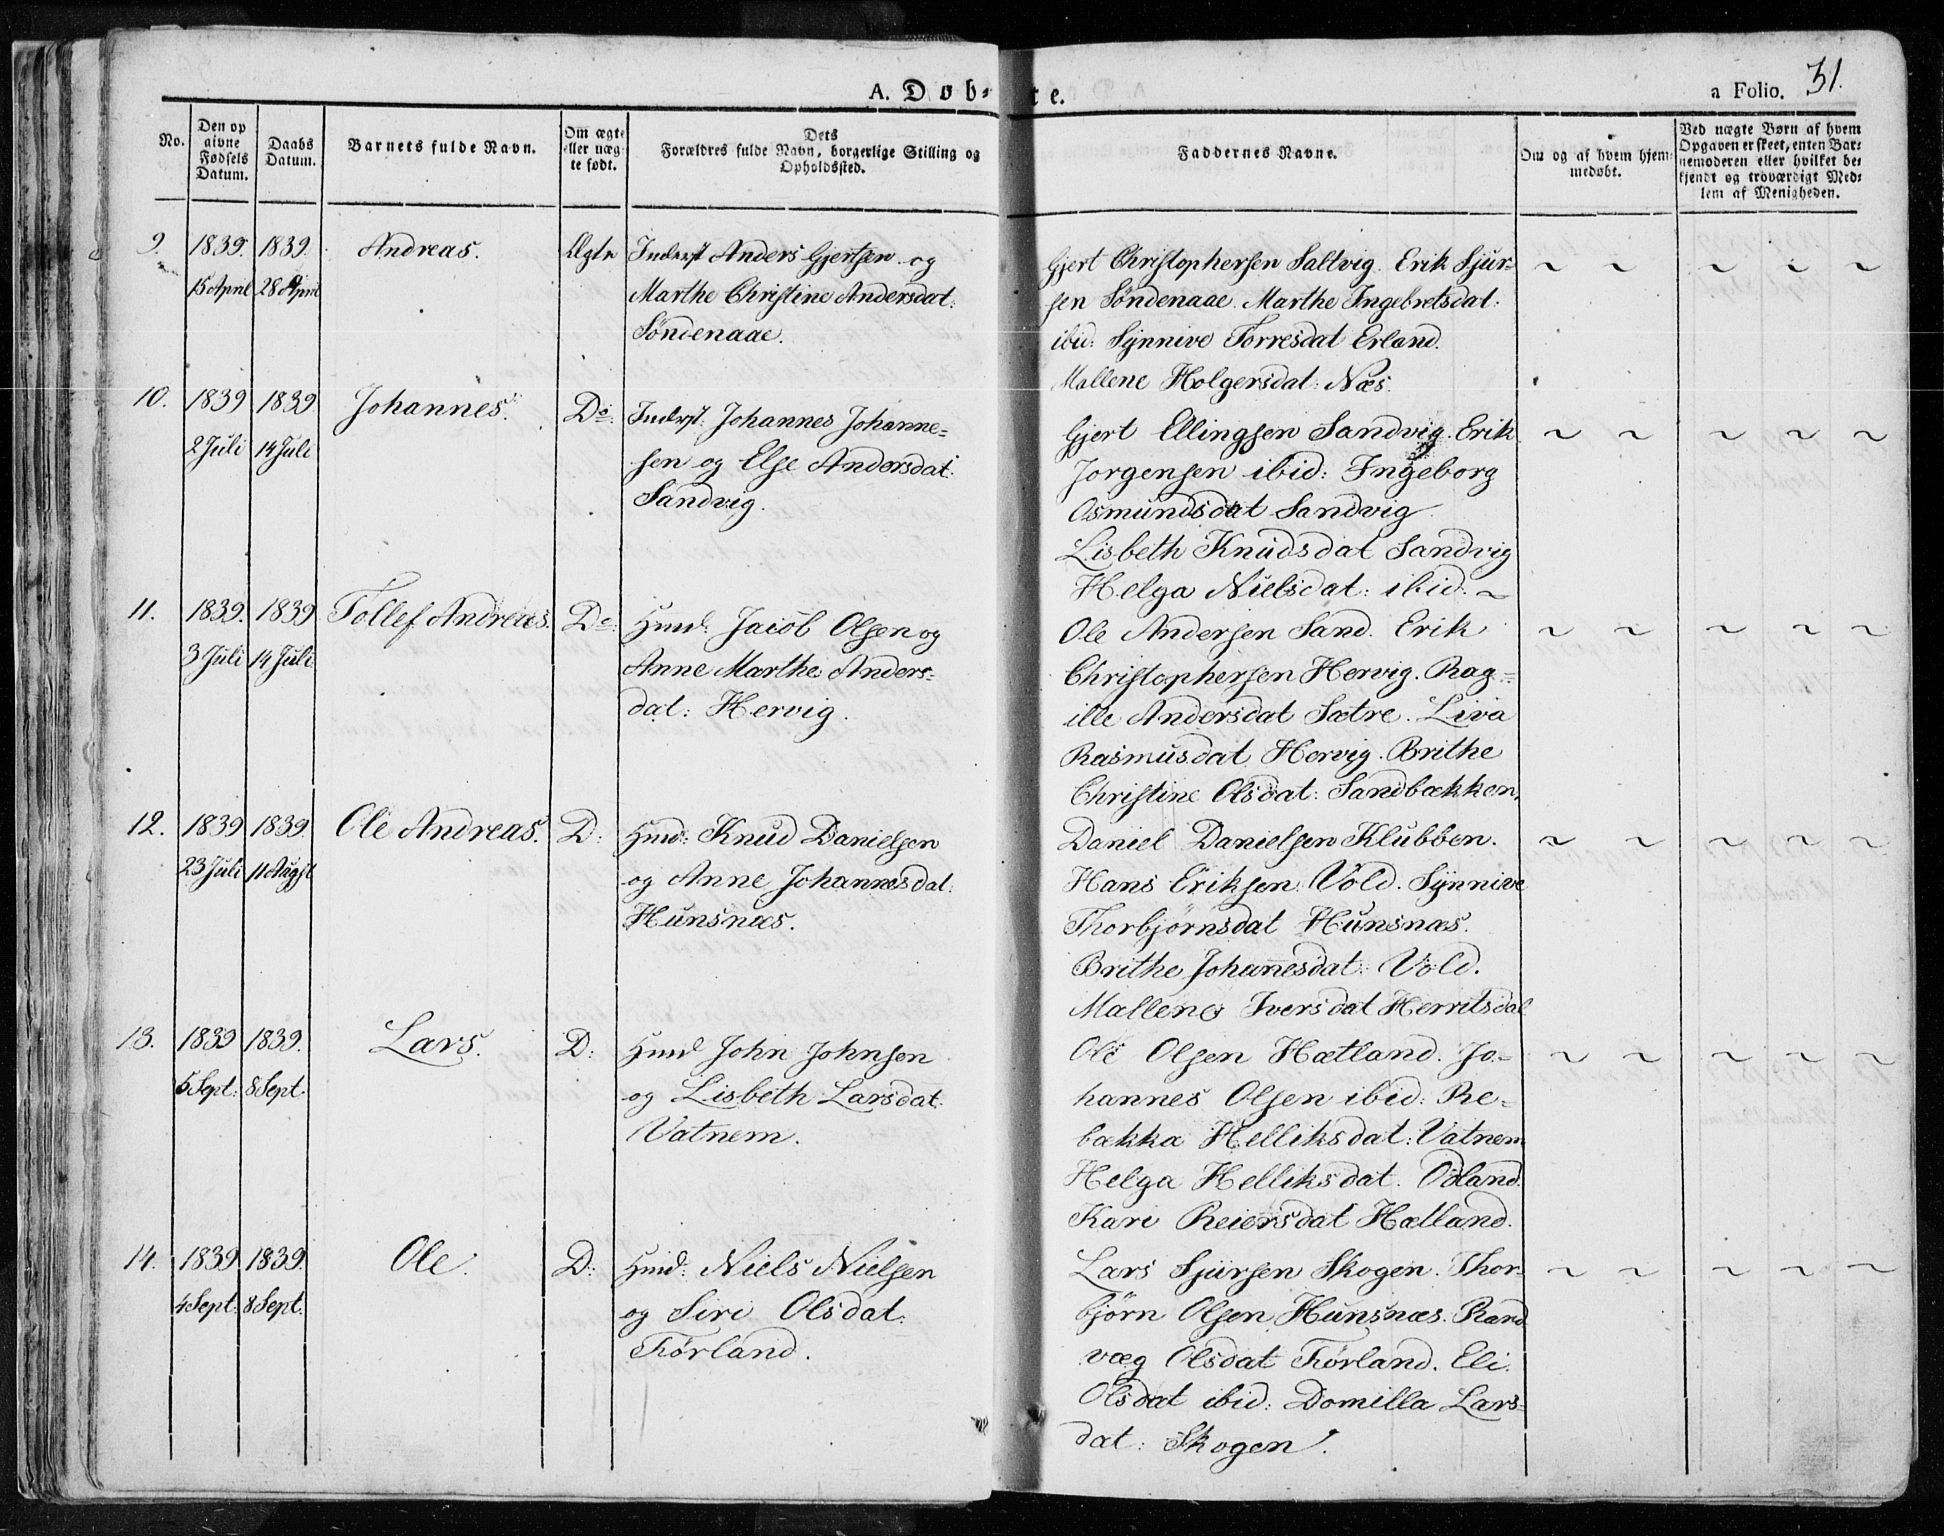 A. Døb-
te.
a Folio. 31.
No.
Den op
givne
Fødsels
Datum.
Daabs
Datum.
Barnets fulde Navn.
Om ægte
eller uæg
te født.
Dets
Forældres fulde Navn, borgerlige Stilling og
Opholdssted.
Faddernes Navne.
Om og af hvem hjem-
medøbt.
Ved uægte Børn af hvem
Opgaven er skeet, enten Bar-
nemoderen eller hvilket be-
kjendt og troværdigt Med-
lem af Menigheden.
9. 1839. 1839. Andreas. Ægte Inderst Anders Gjertsen og
15 April 28 April Marthe Christine Andersdat:
Søndenaae.
Gjert Christophersen Saltvig. Erik Sjur-
sen Søndenaae. Marthe Ingebretsdat:
ibid: Synnive Torresdat Erland.
Mallene Holgersdat: Næs.
10. 1839 1839. Johannes. Do: Inderst: Johannes Johanne-
2 Juli 14 Juli sen og Else Andersdat:
Sandvig.
Gjert Ellingsen Sandvig. Erik
Jorgensen ibid: Ingeborg
Osmundsdat Sandvig
Lisbeth Knudsdat Sandvig
Helga Nielsdat: ibid: ~
11. 1839. 1839 Tollef Andreas. Do: Hmd: Jacob Olsen og
3 Juli 14 Juli Anne Marthe Anders-
dat: Hervig.
Ole Andersen Sand. Erik
Christophersen Hervig. Rag-
ille Andersdat Sætre. Liva
Rasmusdat Hervig. Brithe
Christine Olsdat: Sandbækken.
12. 1839 1839. Ole Andreas. D: Hmd: Knud Danielsen
23 Juli 11 Augst og Anne Johannesdat:
Hunsnæs.
Daniel Danielsen Klubben.
Hans Eriksen Vold. Synnive
Thorbjørnsdat Hunsnæs.
Brithe Johannesdat: Vold.
Mallene Iversdat Herritsdal
13. 1839 1839. Lars. D: Hmd John Johnsen
5 Sept: 8 Sept. og Lisbeth Larsdat:
Vatnem.
Ole Olsen Hætland. Jo-
hannes Olsen ibid: Re-
bækka Helliksdat: Vatnem
Helga Helliksdat. Odland.
Kari Reiersdat Hætland.
14. 1839 1839. Ole. D: Hmd: Niels Nielsen
4 Sept: 8 Sept. og Siri Olsdat:
Førland.
Lars Sjursen Skogen. Thor-
bjørn Olsen Hunsnæs. Rand
væg Olsdat Førland. Eli
Olsdat ibid: Domilla Lars-
dat: Skogen.